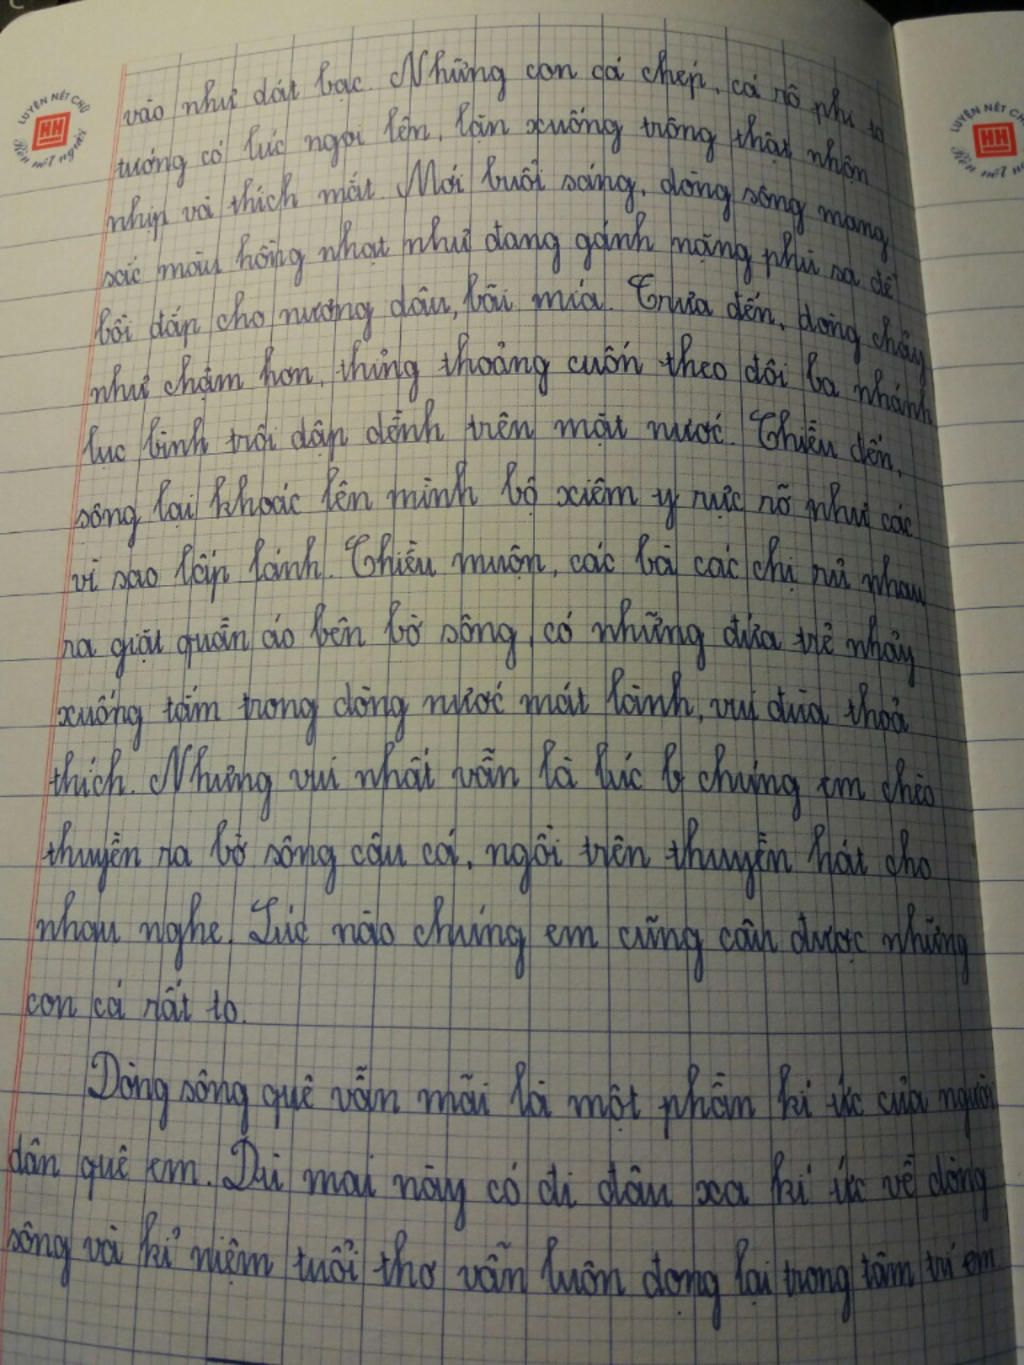 LUYỆN NÉT CHỮ
HH
Rèn nết người
LUYỆN NÉT CHỮ
HH
vào như dát bạc. Những con cá chép, cá rô phi to
tướng có lúc ngoi lên, lặn xuống trông thật nhộn
nhịp và thích mắt. Mỗi buổi sáng, dòng sông mang
sắc màu hồng nhạt như đang gánh nặng phù sa để
bồi đắp cho nương dâu, bãi mía. Trưa đến, dòng chảy
như chậm hơn, thỉng thoảng cuốn theo đôi ba nhánh
lục bình trôi dập dềnh trên mặt nước. Chiều đến,
sông lại khoác lên mình bộ xiêm y rực rỡ như các
vì sao lấp lánh. Chiều muộn, các bà các chị rủ nhau
ra giặt quần áo bên bờ sông, có những đứa trẻ nhảy
xuống tắm trong dòng nước mát lành, vui đùa thoả
thích. Nhưng vui nhất vẫn là lúc chúng em chèo
thuyền ra bờ sông câu cá, ngồi trên thuyền hát cho
nhau nghe. Lúc nào chúng em cũng câu được những
con cá rất to.
Dòng sông quê vẫn mãi là một phần kí ức của người
dân quê em. Dù mai này có đi đâu xa kí ức về dòng
sông và kỉ niệm tuổi thơ vẫn luôn đọng lại trong tâm trí em